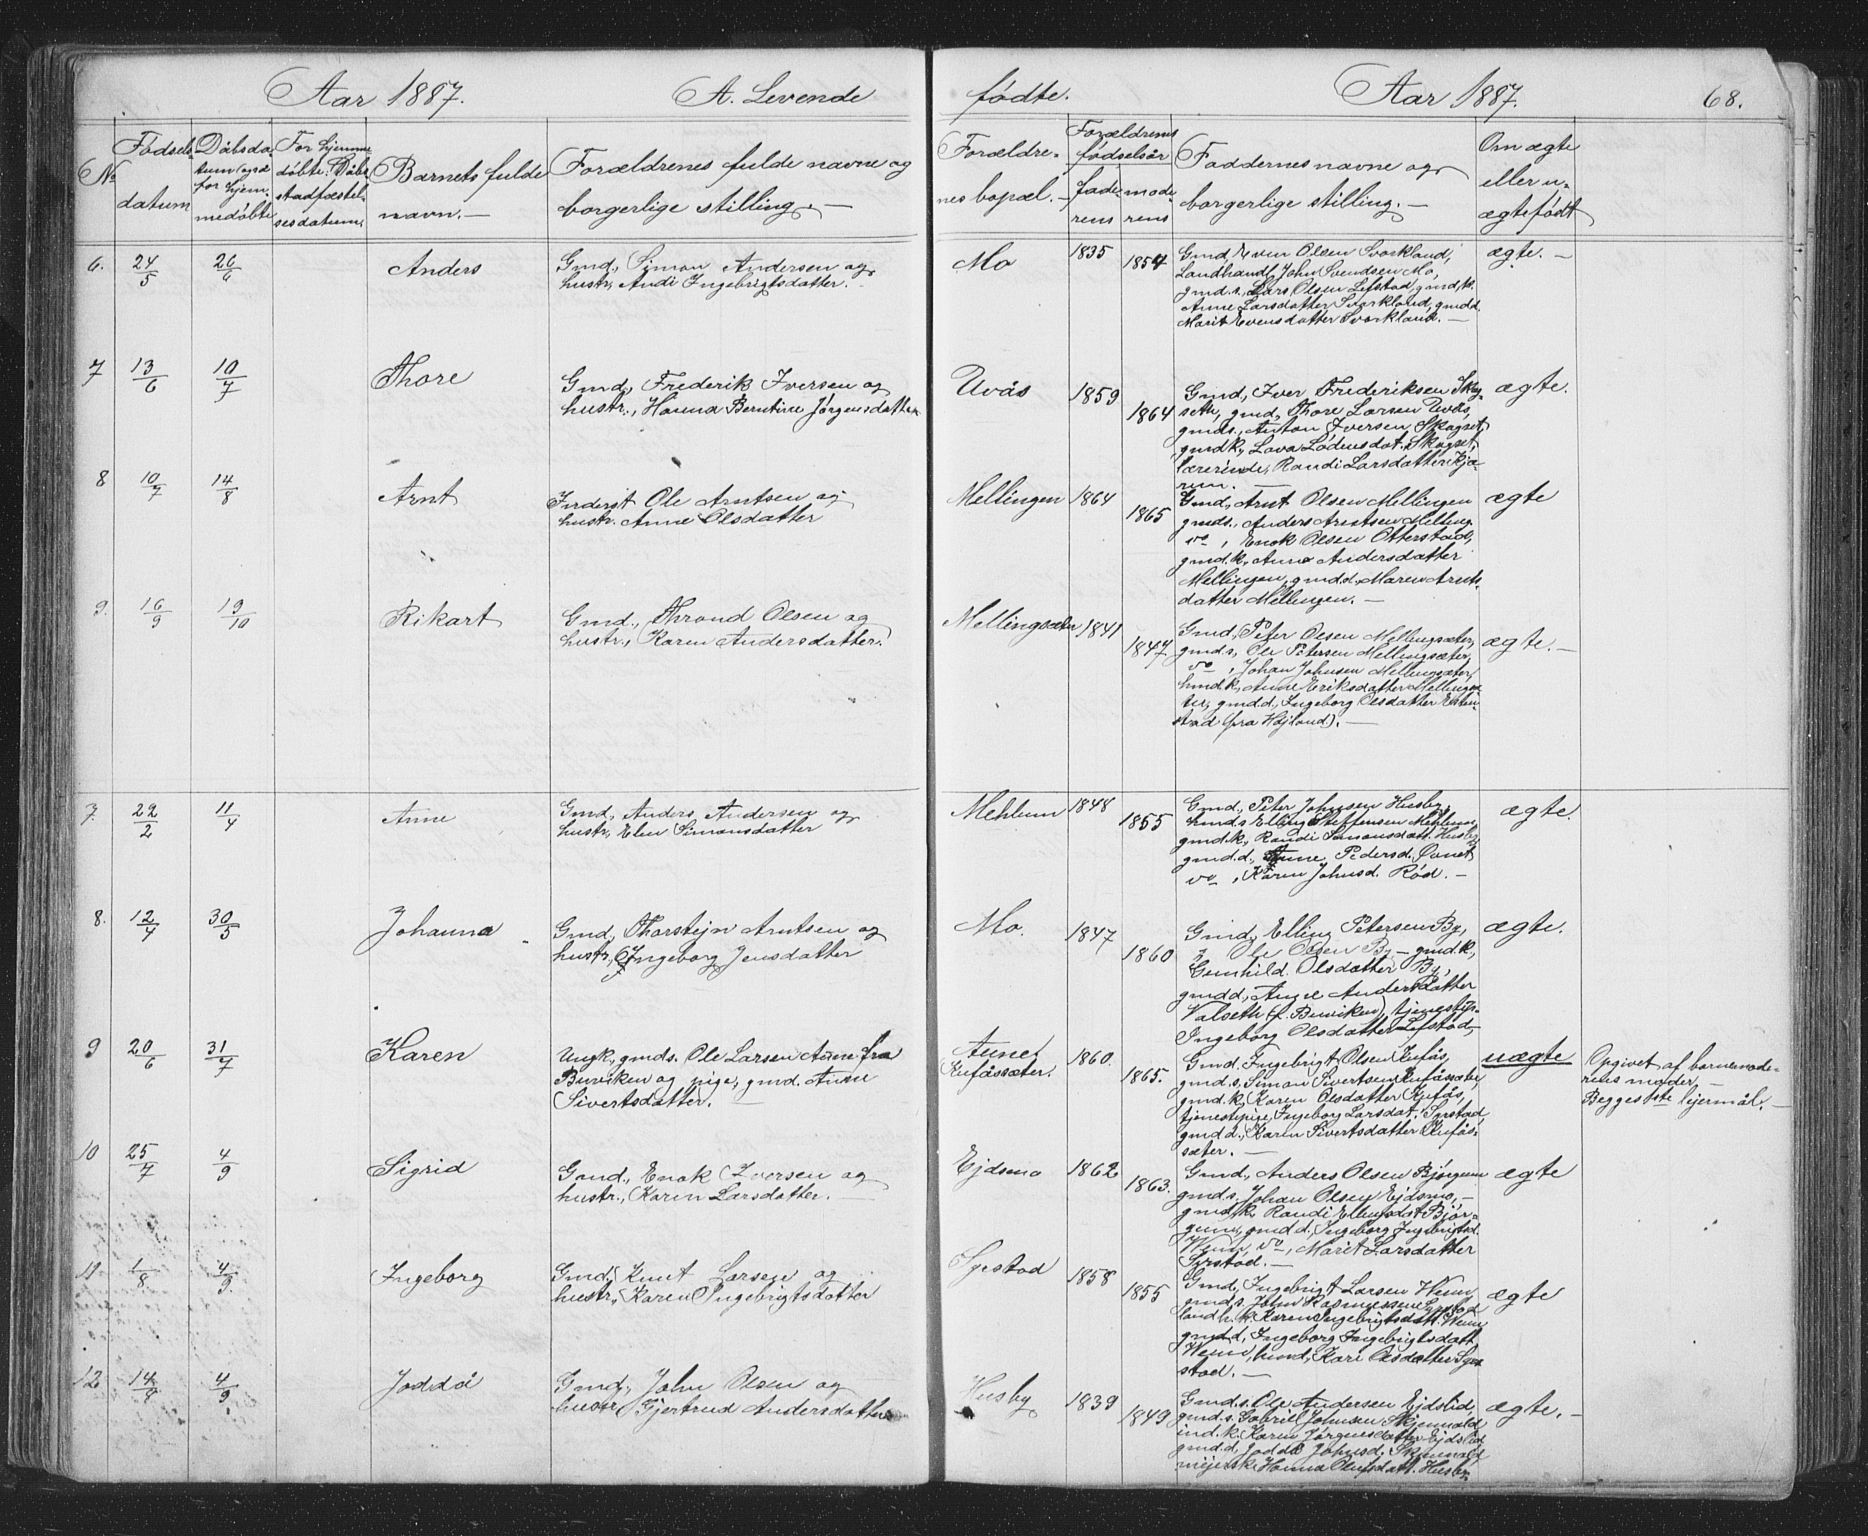 Aar 1887. A. Levende
fødte. Aar 1887. 68.
No
Fødsels-
datum
Dåbsda-
tum også
for hjem-
medøbte
For hjemme-
døbte: Dåbs-
stadfæstel-
sesdatum.
Barnets fulde
navn.—
Forældrenes fulde navne og
borgerlige stilling.—
Forældre-
nes bopæl.—
Forældrenes
fødselsår
fade-
rens
mode-
rens
Faddernes navne og
borgerlige stilling.—
Om ægte
eller u-
ægte født
6. 24/5 26/6 Anders
Gmd., Simon Andersen og
hustr. Andi Ingebrigtsdatter.
Mo 1835 1854
Gmd. Even Olsen Svorkland,
Landhandl. John Svendsen Mo,
gmd.s., Lars Olsen Lefstad, gmd.k.
Anne Larsdatter Svorkland, gmd.d.
Marit Evensdatter Svorkland.—
ægte.—
7 13/6 10/7 Thore
Gmd., Frederik Iversen og
hustr., Hanna Berntine Jørgensdatter
Uvås 1859 1864
Gmd., Iver Frederiksen Skog-
seth, gmd. Thore Larsen Uvås,
gmds., Anton Iversen Skogset,
gmdk., Lava Lødensdat. Skogset,
lærerinde, Randi Larsdatter Kjø-
rum.—
ægte.
8 10/7 14/8 Arnt
Inderst Ole Arntsen og
hustr. Anne Olsdatter
Mellingen 1864 1865
Gmd., Arnt Olsen Mellingen
gmds., Anders Arntsen Melling.
do, Enok Olsen Otterstad,
gmd.k., Anne Andersdatter
Mellingen, gmd.d., Maren Arnts-
datter Mellingen.—
ægte
9. 16/9 19/10 Rikart
Gmd., Thrond Olsen og
hustr., Karen Andersdatter.
Mellingsæter 1841 1847
Gmd., Peter Olsen Mellingsæter,
gmd.s, Ole Petersen Mellingsæter,
do, Johan Johnsen Mellingsæter,
hmd.k., Anne Eriksdatter Mellingsæ-
ter, gmd.d., Ingeborg Olsdatter
stad (fra Højland).—
ægte.—
7. 22/2 11/4 Anne
Gmd., Anders Andersen og
hustr., Elen Simonsdatter
Mehlum 1848 1855
Gmd., Peter Johnsen Husby,
hmd.s Elling Steffensen Mehlum,
gmd.k., Randi Simonsdatt. Husby,
gmd.d., Anne Pedersd.
do, Karen Johnsd. Rød.—
ægte.
8. 12/4 30/5 Johanna
Gmd., Thorstejn Arntsen og
hustr., Ingeborg Jensdatter
Mo. 1847 1860
Gmd., Elling Petersen By,
Ole Olsen By — gmd.k,
Gunhild Olsdatter By,
gmdd., Anne Andersdatter
Valseth (f. Buviken), tjenestep.
Ingeborg Olsdatter Lefstad—
ægte.
9 20/6 31/7 Karen
Ungk., gmds. Ole Larsen Aune fra
Buviken og pige, gmd. Anne
Sivertsdatter.—
Aune,
Rufåssæter. 1860. 1865.
Gmd. Ingebrigt Olsen Rufås,
gmd.s, Simon Sivertsen Rufåssæter,
gmd.k, Karen Olsdatter Rufås,
tjenestepige, Ingeborg Larsdat. Syrstad,
gmd d., Karen Sivertsdatter Rufås-
sæter.—
uægte
Opgivet af barnemode-
rens moder.—
Begges 1ste lejermål.—
10 25/7 4/9 Sigrid
Gmd., Enok Iversen og
hustr., Karen Larsdatter.—
Ejdsmo 1862 1863.
Gmd., Anders Olsen Bjørgum
gmd.s, Johan Olsen Ejdsmo,—
gmd.k. Randi Ellingsdat Bjør-
gum, gmd.d., Ingeborg Ingebrigtsd.
Wenn, do, Marit Larsdatter
Syrstad.—
ægte
11 1/8 4/9. Ingeborg
Gmd, Knut Larsen og
hustr., Karen Ingebrigtsdatter
Syrstad 1858 1855
Gmd., Ingebrigt Larsen Wenn
gmd.s. John Rasmussen Syrstad,
landh.k. Karen Ingebrigtsdatt. Wenn
gmd.d, Ingeborg Ingebrigtsdatt.
Wenn, hmd., Kari Olsdatter Syr-
stad.—
ægte
12 14/8 4/9. Joddå
Gmd., John Olsen og
hustr. Gjertrud Andersdatter
Husby 1839 1849
Gmd.s. Ole Andersen Ejdslid,
gmd.s. Gabriel Johnsen Skjenvald,
ind.k. Karen Jørgensdatter Ejdslid
gmd.d, Joddå Johnsd. Skjenvald
mejersk. Hanna Olufsdatt. Husby
ægte.—